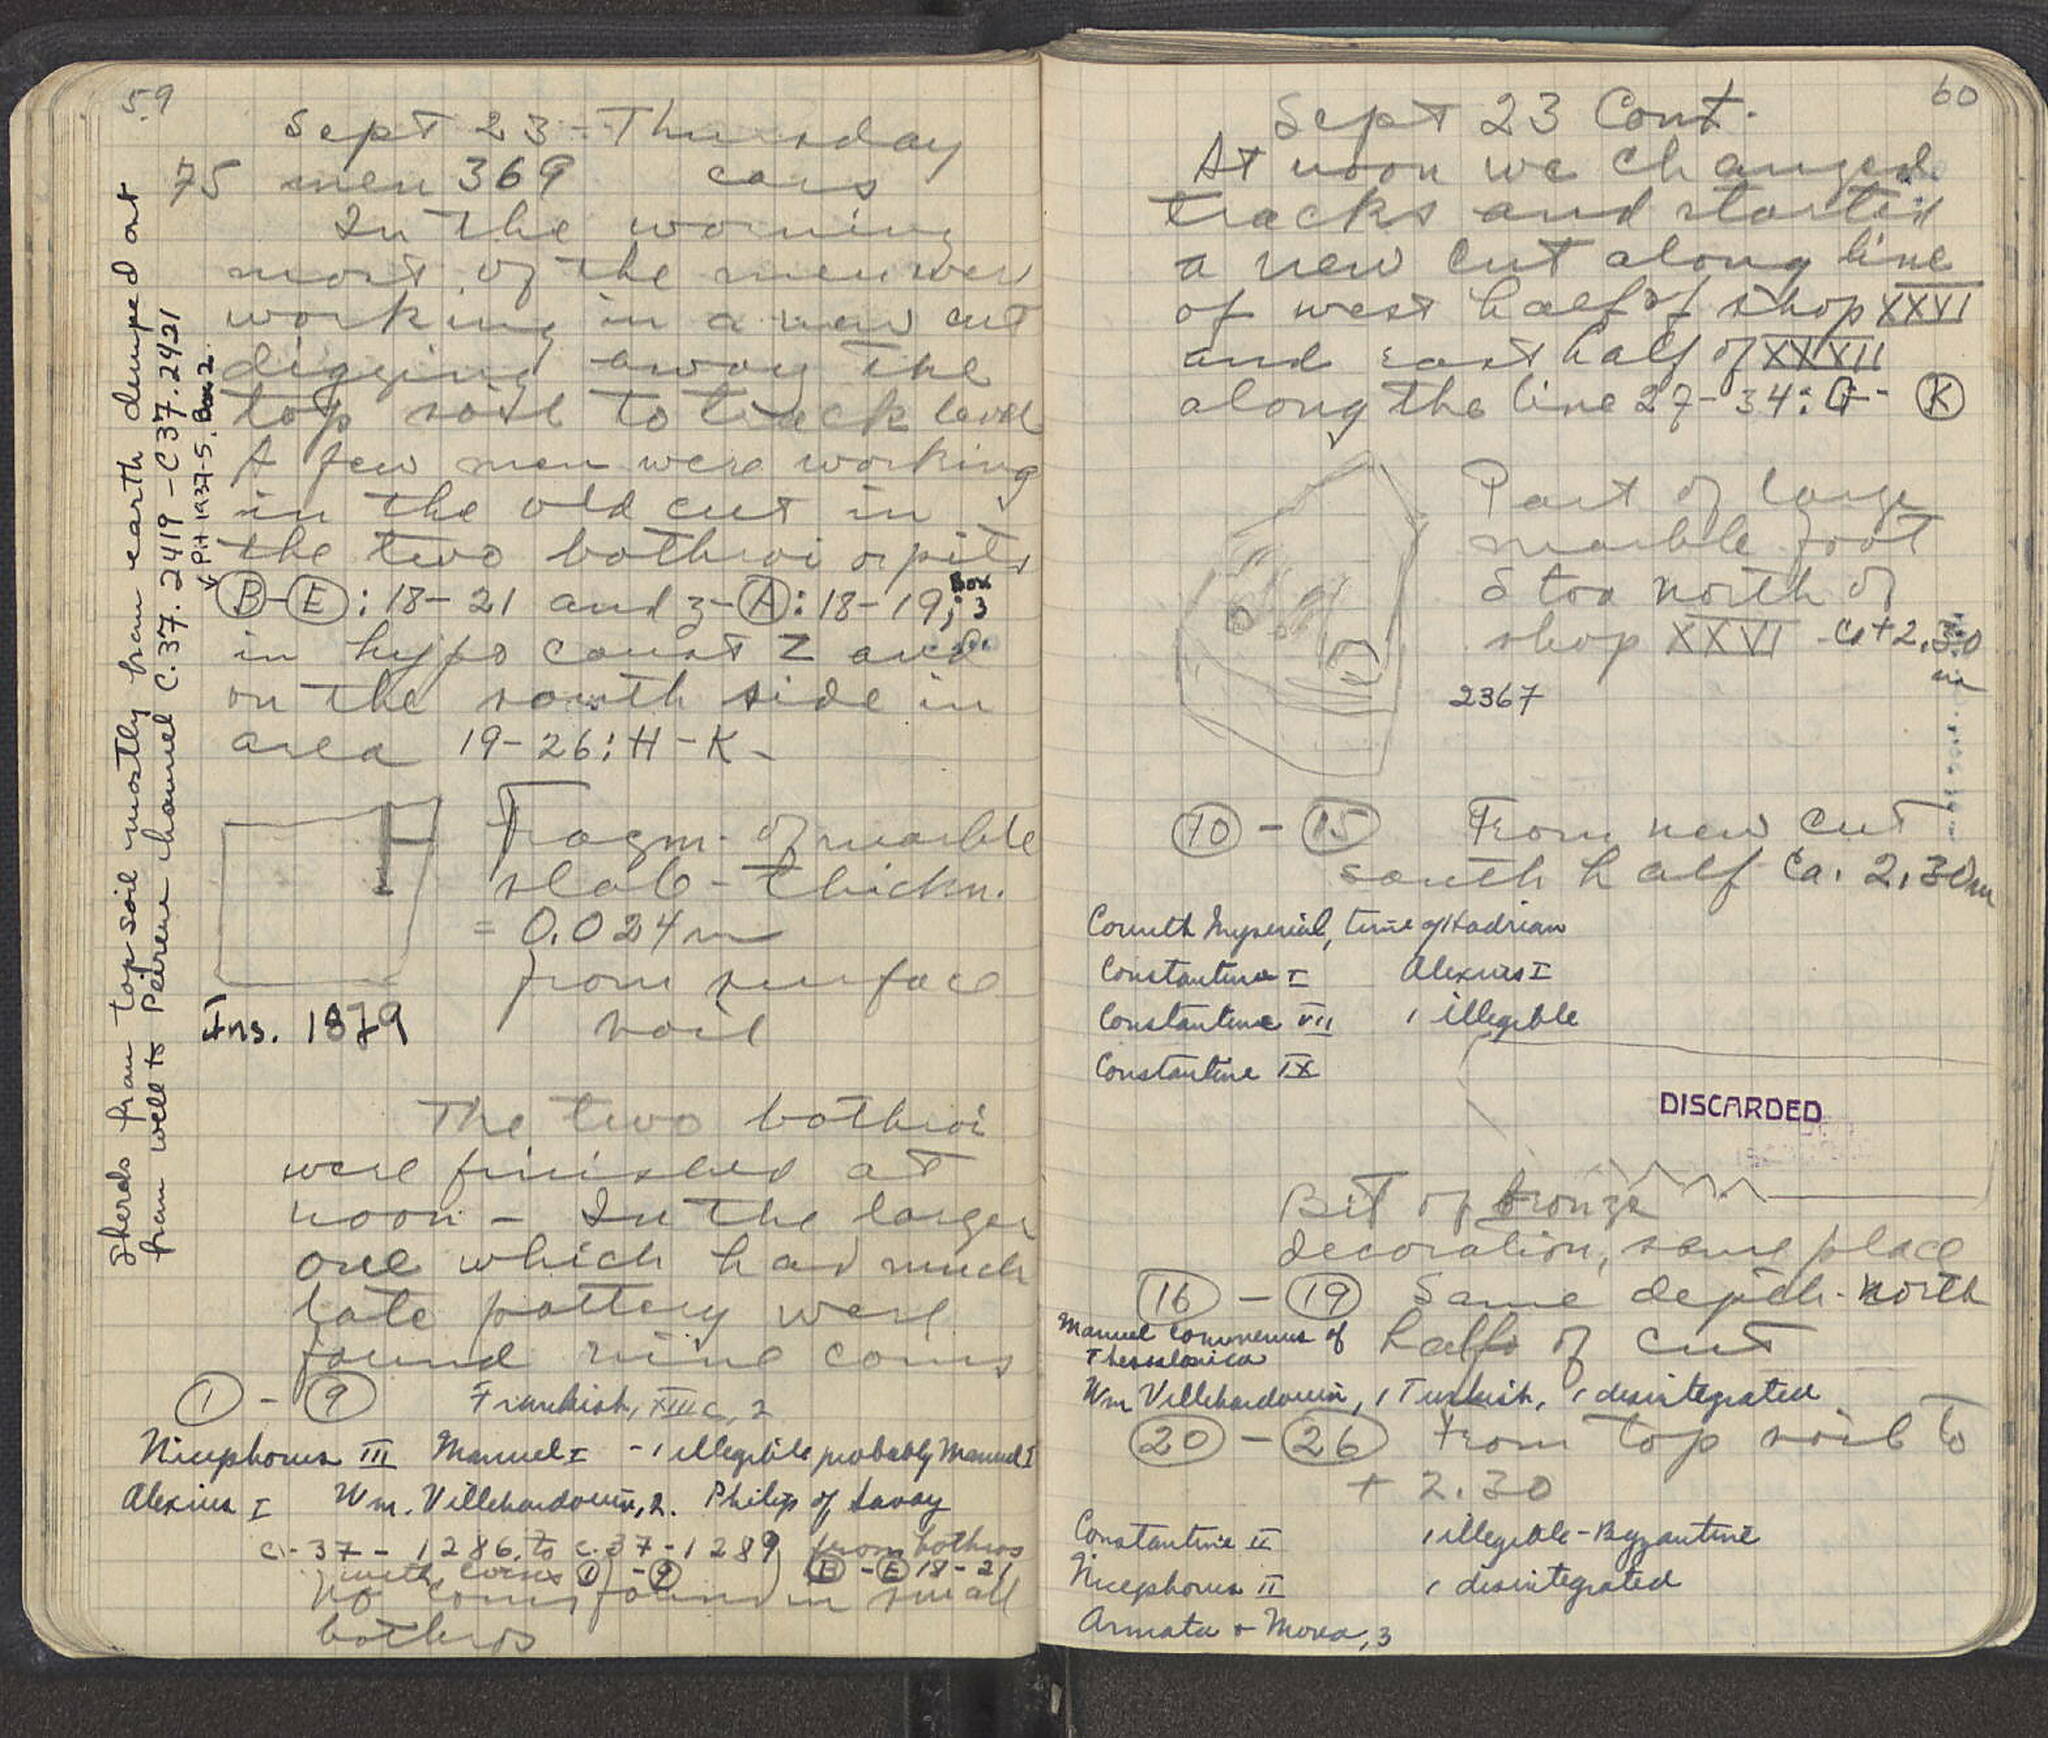 59
Sept 23 - Thursday
75 men 369 cars
In the morning
most of the men were
working in a new cut
digging away the
top soil to track level
A few men were working
in the old cut in
the two bothroi or pits
B-E: 18-21 and 3-A: 18-19; Box 3
in hypo caust Z and
on the south side in
area 19-26: H-K-
H
Fragm. of marble
slab - thickn.
= 0.024 m
from surface
soil
Ins. 1879
The two bothroi
were finished at
noon - In the larger
one which had much
late pottery were
found nine coins
1 - 9 Frankish, XIII c, 2
Nicephorus III Manuel I - 1 illegible probably Manuel I
Alexius I Wm. Villehardouin, 2. Philip of Savoy
C-37-1286 to C-37-1289 from bothros
with coins 1 - 9 B-E 18-21
No coins found in small
bothros
Sherds from top soil mostly from earth dumped out
from well to Peirene channel C.37.2419 - C37.2421
P.H 1937-5. Box 2
60
Sept 23 Cont.
At noon we changed
tracks and started
a new cut along line
of west half of shop XXVI
and east half of XXXII
along the line 27-34: G- K
Part of large
marble foot
Stoa north of
shop XXVI - ca +2.30
m
2367
10 - 15 From new cut
south half Ca. 2.30m
Corinth Imperial, time of Hadrian
Constantine I Alexius I
Constantine VII 1 illegible
Constantine IX
DISCARDED
Bit of bronze
decoration, same place
16 - 19 Same depth - north
half of cut
Manuel Comnenus of
Thessalonica
Wm Villehardouin, 1 Turkish, 1 disintegrated
20 - 26 From top soil to
+ 2.30
Constantine II 1 illegible - Byzantine
Nicephorus II 1 disintegrated
Armata & Morea, 3